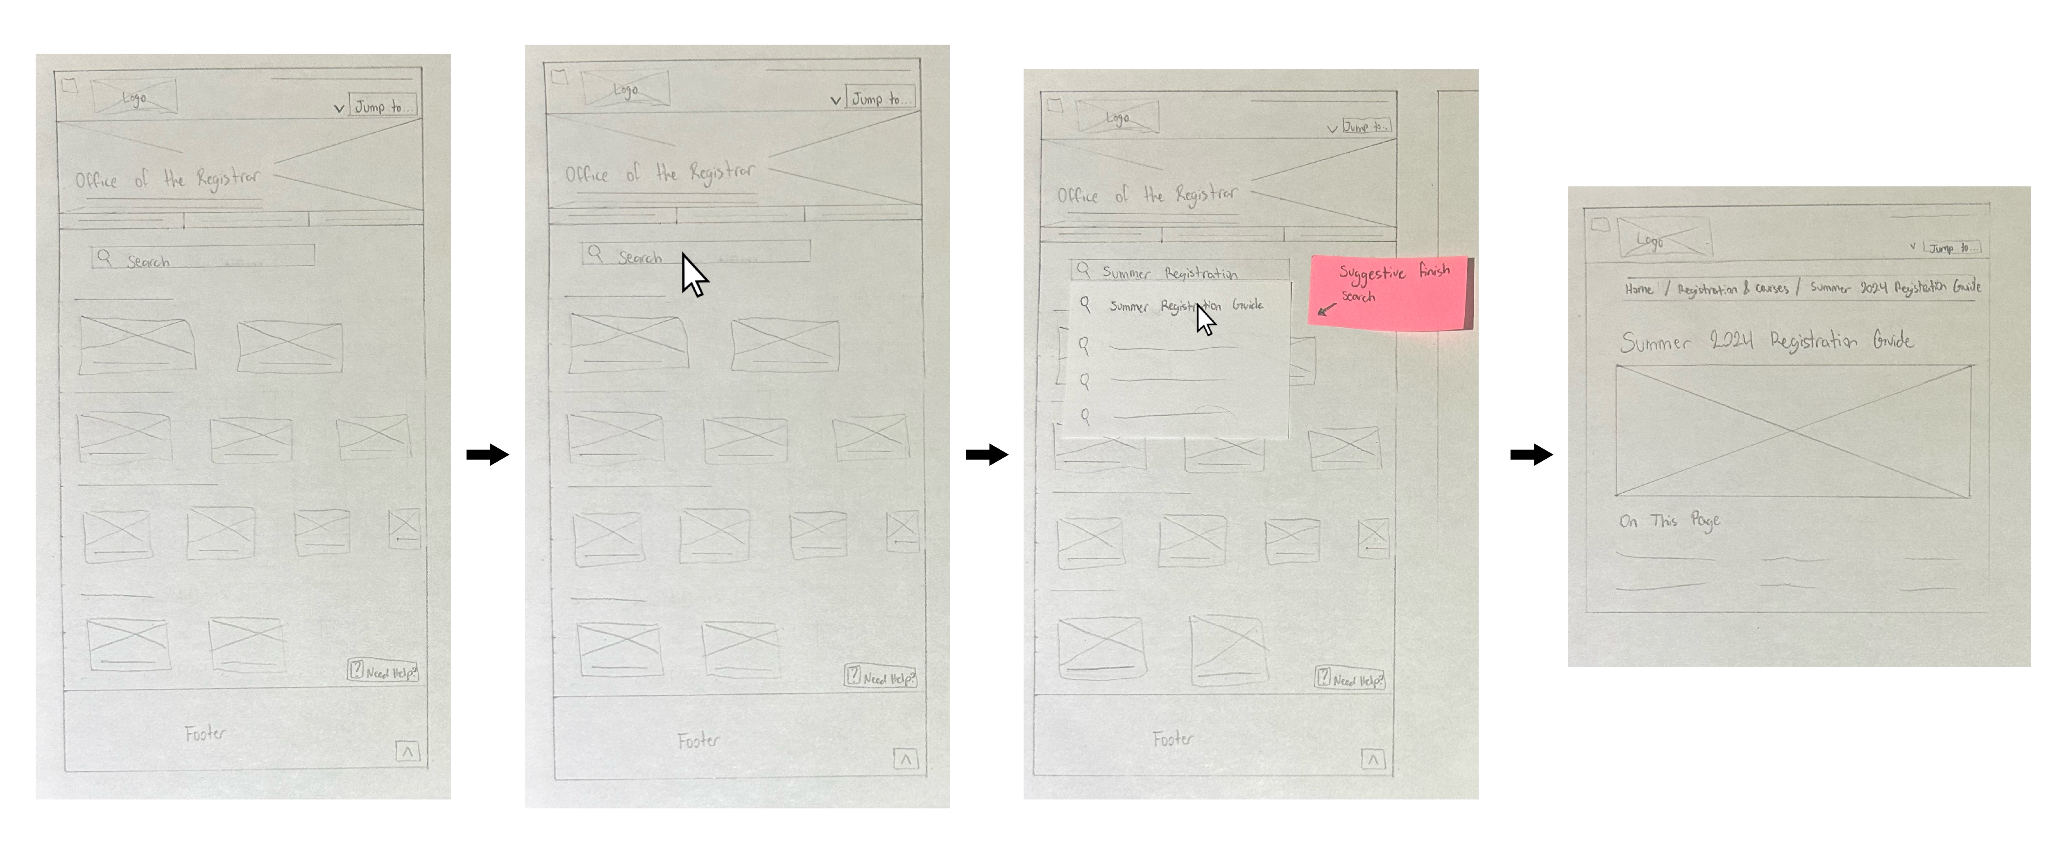 Logo
Jump to...
Office of the Registrar
Search
? Need Help?
Footer
Logo
Jump to...
Office of the Registrar
Search
? Need Help?
Footer
Logo
Jump to...
Office of the Registrar
Summer Registration
Summer Registration Guide
Suggestive finish
search
? Need Help?
Footer
Logo
Jump to...
Home / Registration & courses / Summer 2024 Registration Guide
Summer 2024 Registration Guide
On This Page